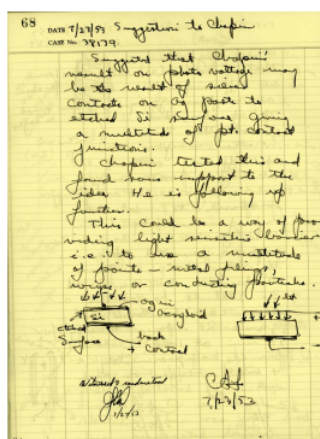 68 DATE 7/23/53 Suggestion to Chapin
CASE No. 38139
Suggested that Chapin's
result on photo voltage may
be the result of
contacts on ag paste to
etched Si surface giving
a multitude of pt. contact
junctions.
Chapin tested this and
found some support to the
idea. He is following up
further.
This could be a way of pro-
viding light sensitive barriers
i.e. to use a multitude
of points - metal filings,
or conducting particles.
ag in
Si
etched
Surface
back
contact
Witnessed & understood
7/23/53